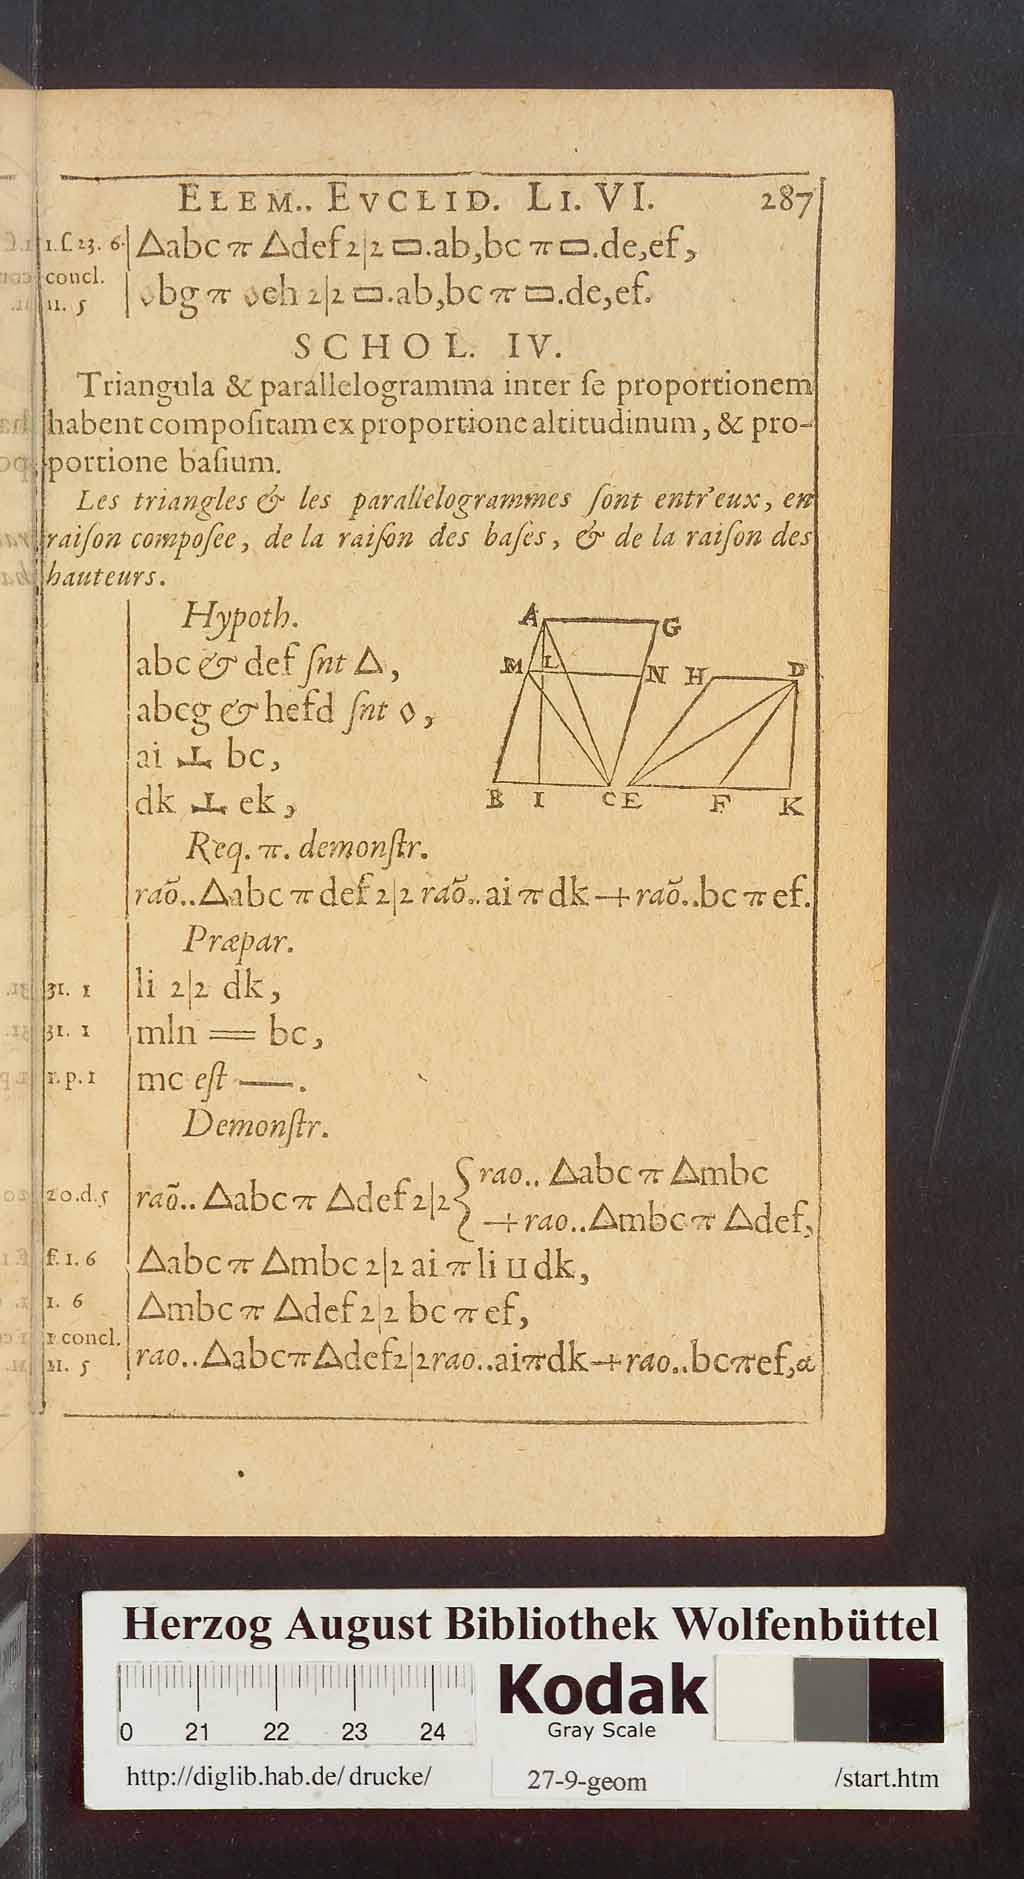 ELEM.. EVCLID. LI. VI. 287
1. ſ. 23. 6. Δabc π Δdef 2|2 ▭.ab,bc π ▭.de,ef,
concl.
11. 5 ◊bg π ◊eh 2|2 ▭.ab,bc π ▭.de,ef.
SCHOL. IV.
Triangula & parallelogramma inter ſe proportionem
habent compoſitam ex proportione altitudinum, & pro-
portione baſium.
Les triangles & les parallelogrammes ſont entr'eux, en
raiſon compoſee, de la raiſon des baſes, & de la raiſon des
hauteurs.
Hypoth.
abc & def ſnt Δ,
abcg & hefd ſnt ◊,
ai ⊥ bc,
dk ⊥ ek,
A G
M L N H D
B I C E F K
Req. π. demonſtr.
raõ.. Δabc π def 2|2 raõ.. ai π dk + raõ.. bc π ef.
Præpar.
31. 1 li 2|2 dk,
31. 1 mln = bc,
1. p. 1 mc eſt —.
Demonſtr.
20. d. 5 raõ.. Δabc π Δdef 2|2 { rao.. Δabc π Δmbc
+ rao.. Δmbc π Δdef,
ſ. 1. 6 Δabc π Δmbc 2|2 ai π li ⊔ dk,
1. 6 Δmbc π Δdef 2|2 bc π ef,
1 concl.
11. 5 rao.. Δabc π Δdef 2|2 rao.. ai π dk + rao.. bc π ef, α
Herzog August Bibliothek Wolfenbüttel
Kodak
Gray Scale
0 21 22 23 24
http://diglib.hab.de/drucke/ 27-9-geom /start.htm